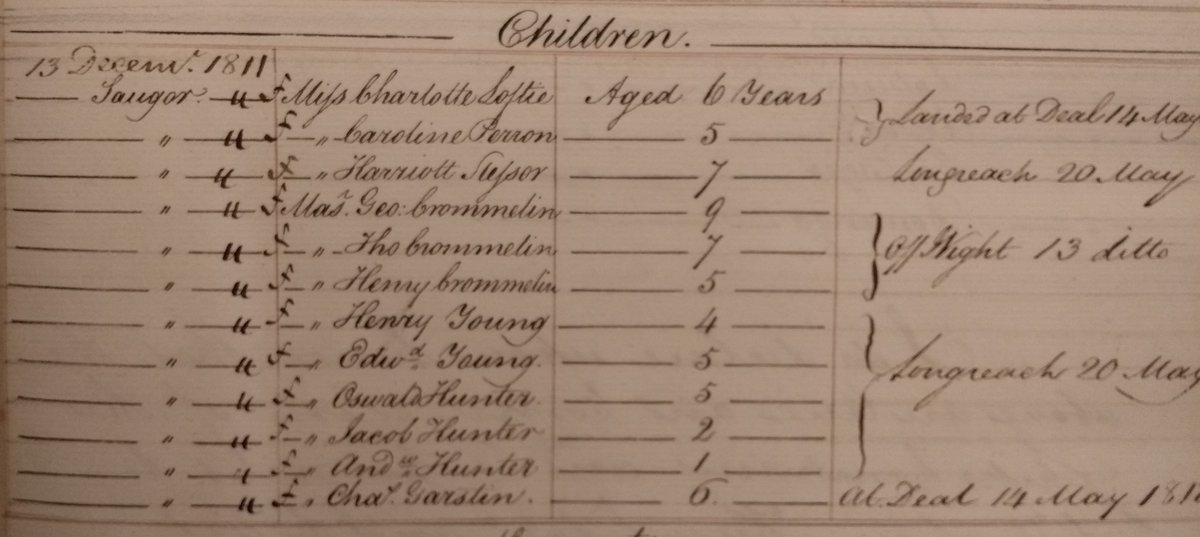 Children.
13 Decemr. 1811
Saugor. " F Miss Charlotte Loftie Aged 6 Years } Landed at Deal 14 May
" " F " Caroline Perron 5
" " F " Harriott Slessor 7 Longreach 20 May
" " F Masr. Geo: Crommelin 9
" " F " Tho Crommelin 7 } Off Wight 13 ditto
" " F " Henry Crommelin 5
" " F " Henry Young 4
" " F " Edwd Young. 5 } Longreach 20 May
" " F " Oswald Hunter. 5
" " F " Jacob Hunter 2
" " F " Andw Hunter 1
" " F " Chas. Garstin. 6. at Deal 14 May